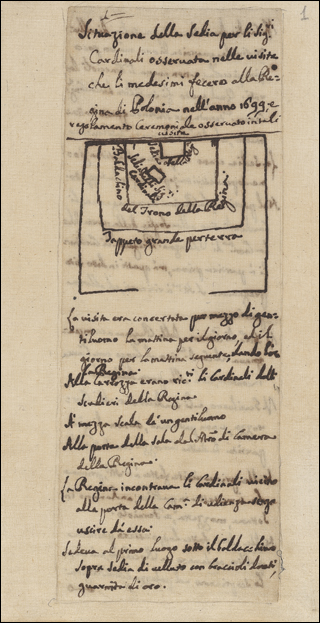 1
Situazione della Sedia per li Sig.ri
Cardinali osservata nelle visite
che li medesimi fecero alla Re=
gina di Polonia nell'anno 1699 e
regolamento Ceremoniale osservato in tali
visite
Baldachino
Sedia della
Sedia di Sig.ri
Cardinali
del Trono della Regina
Tappeto grande per terra
La visita era concertata per mezzo di gen=
tiluomo la mattina per il giorno, ed il
giorno per la mattina seguente, dando l'ora
la Regina.
Alla Carrozza erano ric.ti li Cardinali dalli
Scudieri della Regina
A mezza scala da un gentiluomo
Alla porta della sala dal di Camera
della Regina.
La Regina incontrava li Cardinali
alla porta della Cam.a di udienza senza
uscire da essa.
Sedeva al primo luogo sotto il baldacchino
sopra sedia di velluto con braccioli dorati,
guarnita di oro.